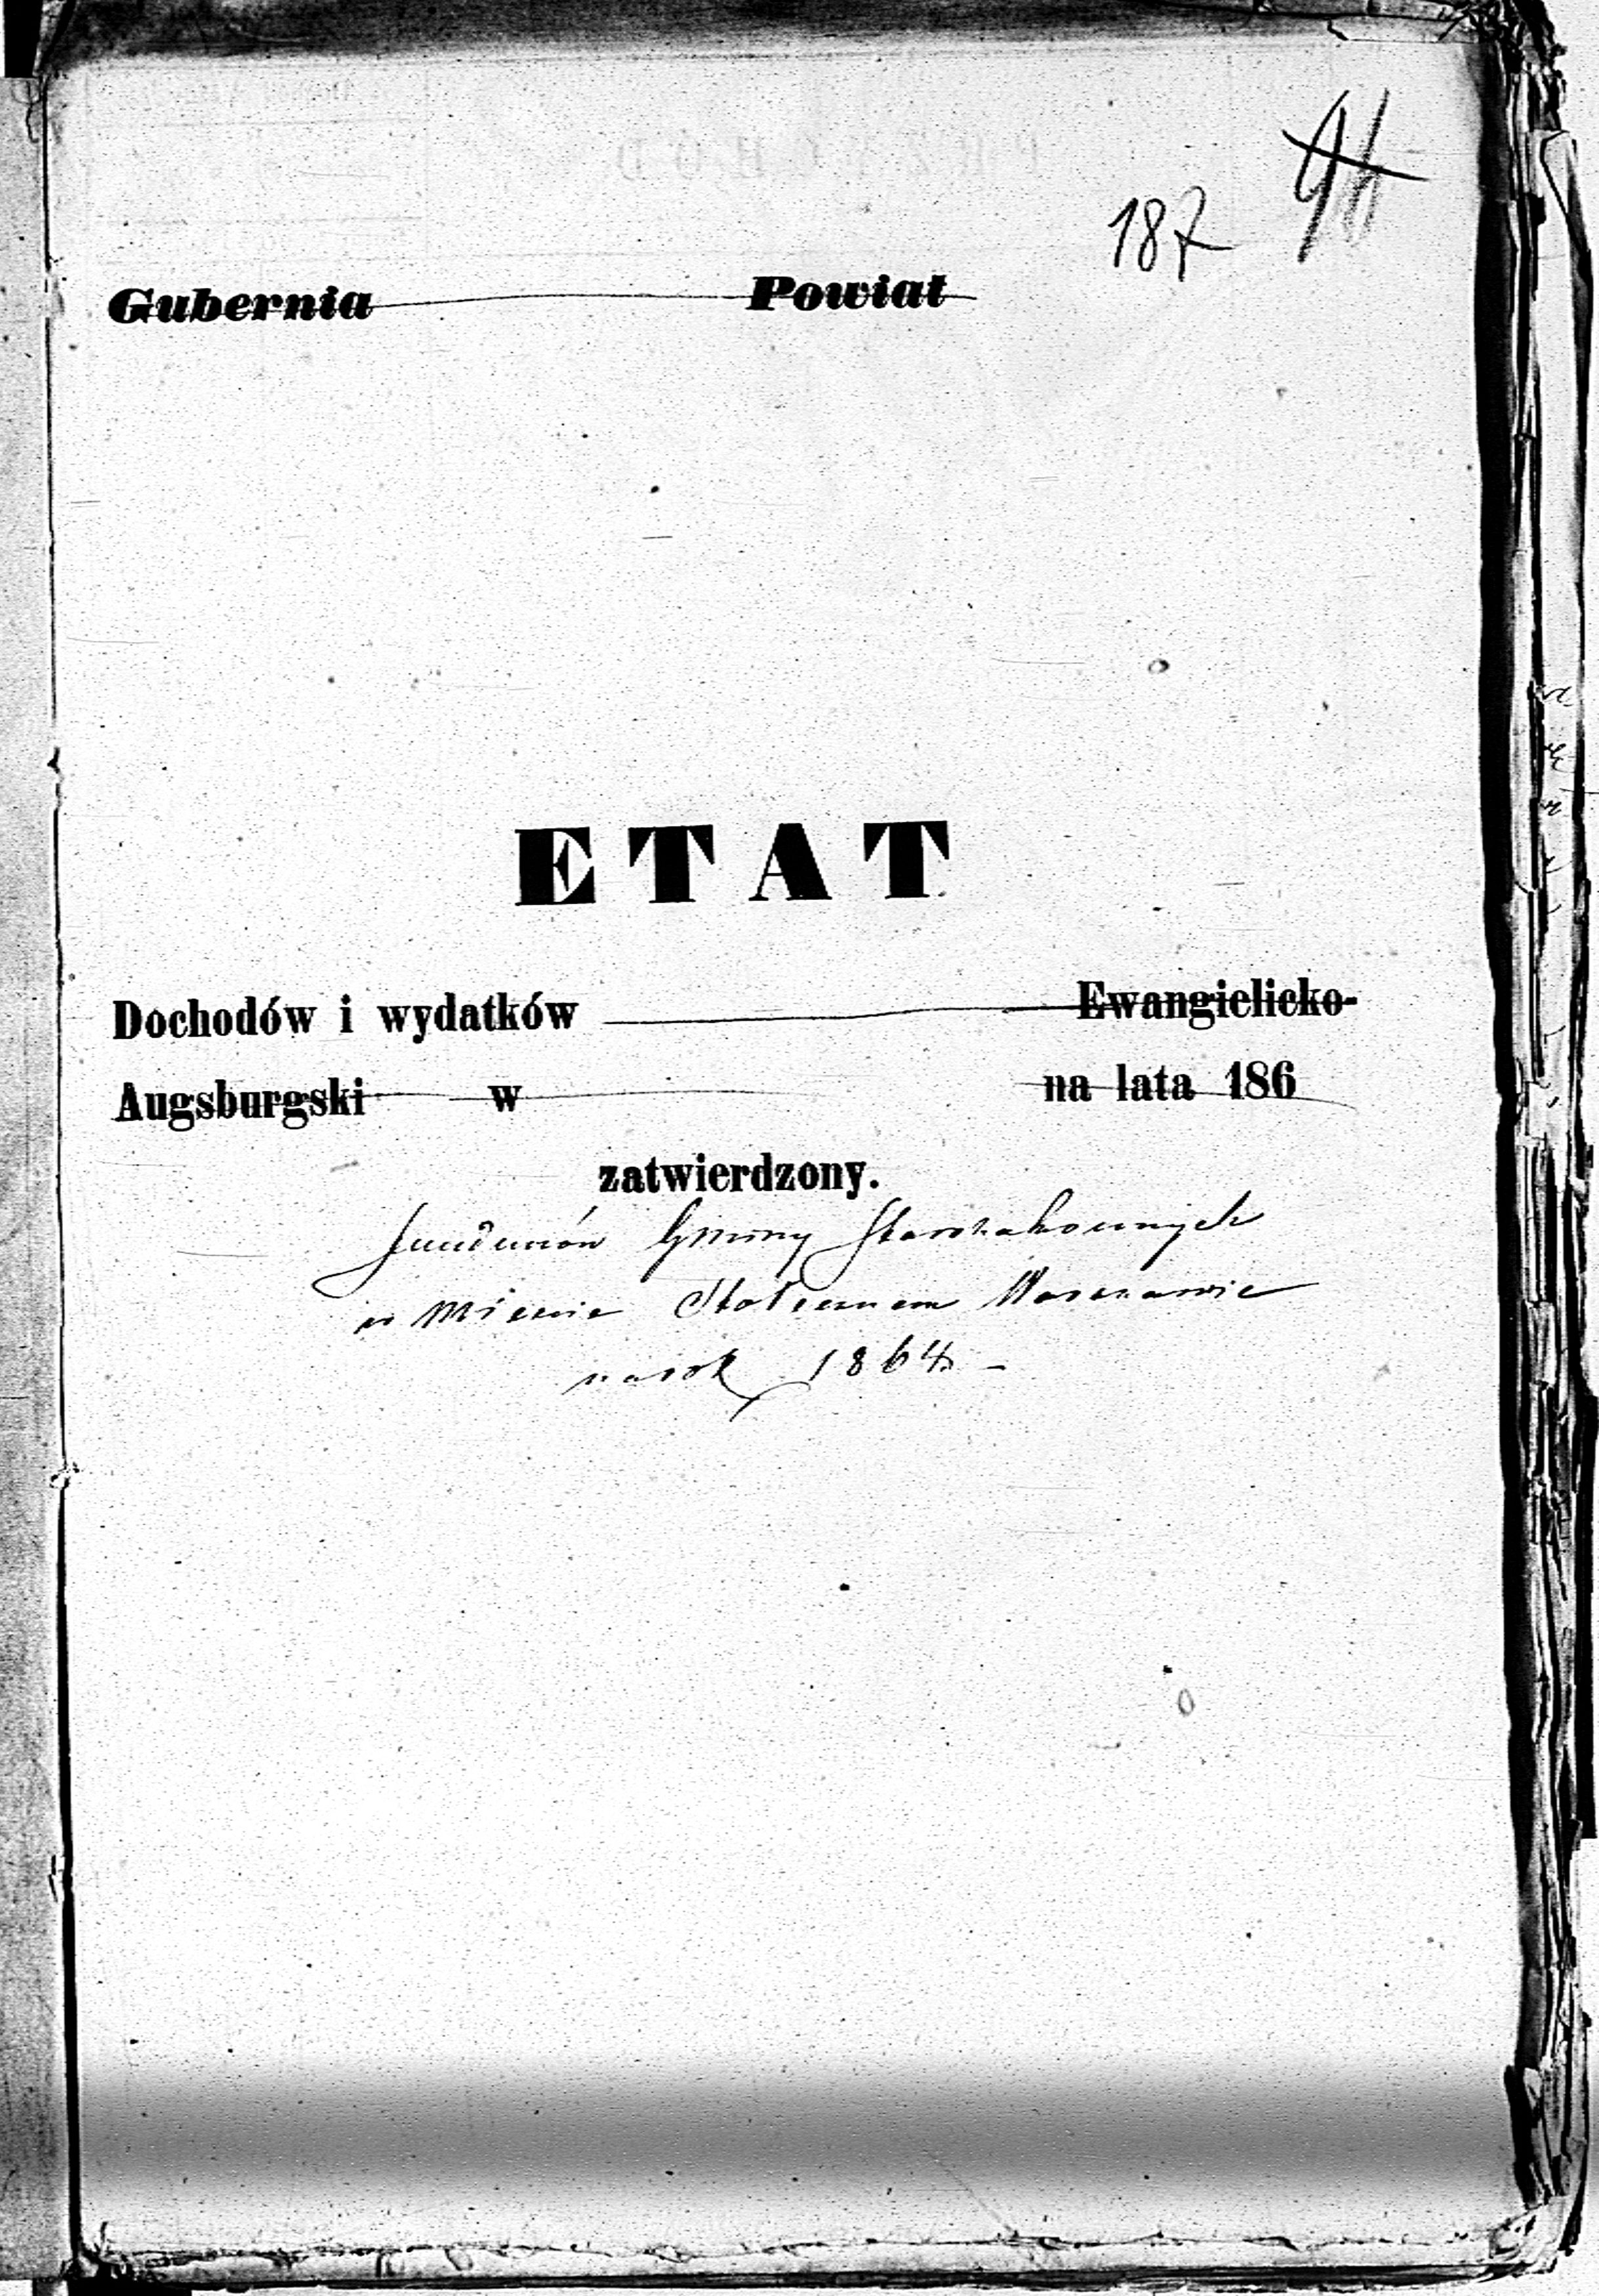 187
91
Gubernia Powiat
ETAT
Dochodów i wydatków Ewangielicko-
Augsburgski w na lata 186
zatwierdzony.
Funduszów Gminy Starozakonnych
w Mieście Stołecznem Warszawie
na rok 1864 -